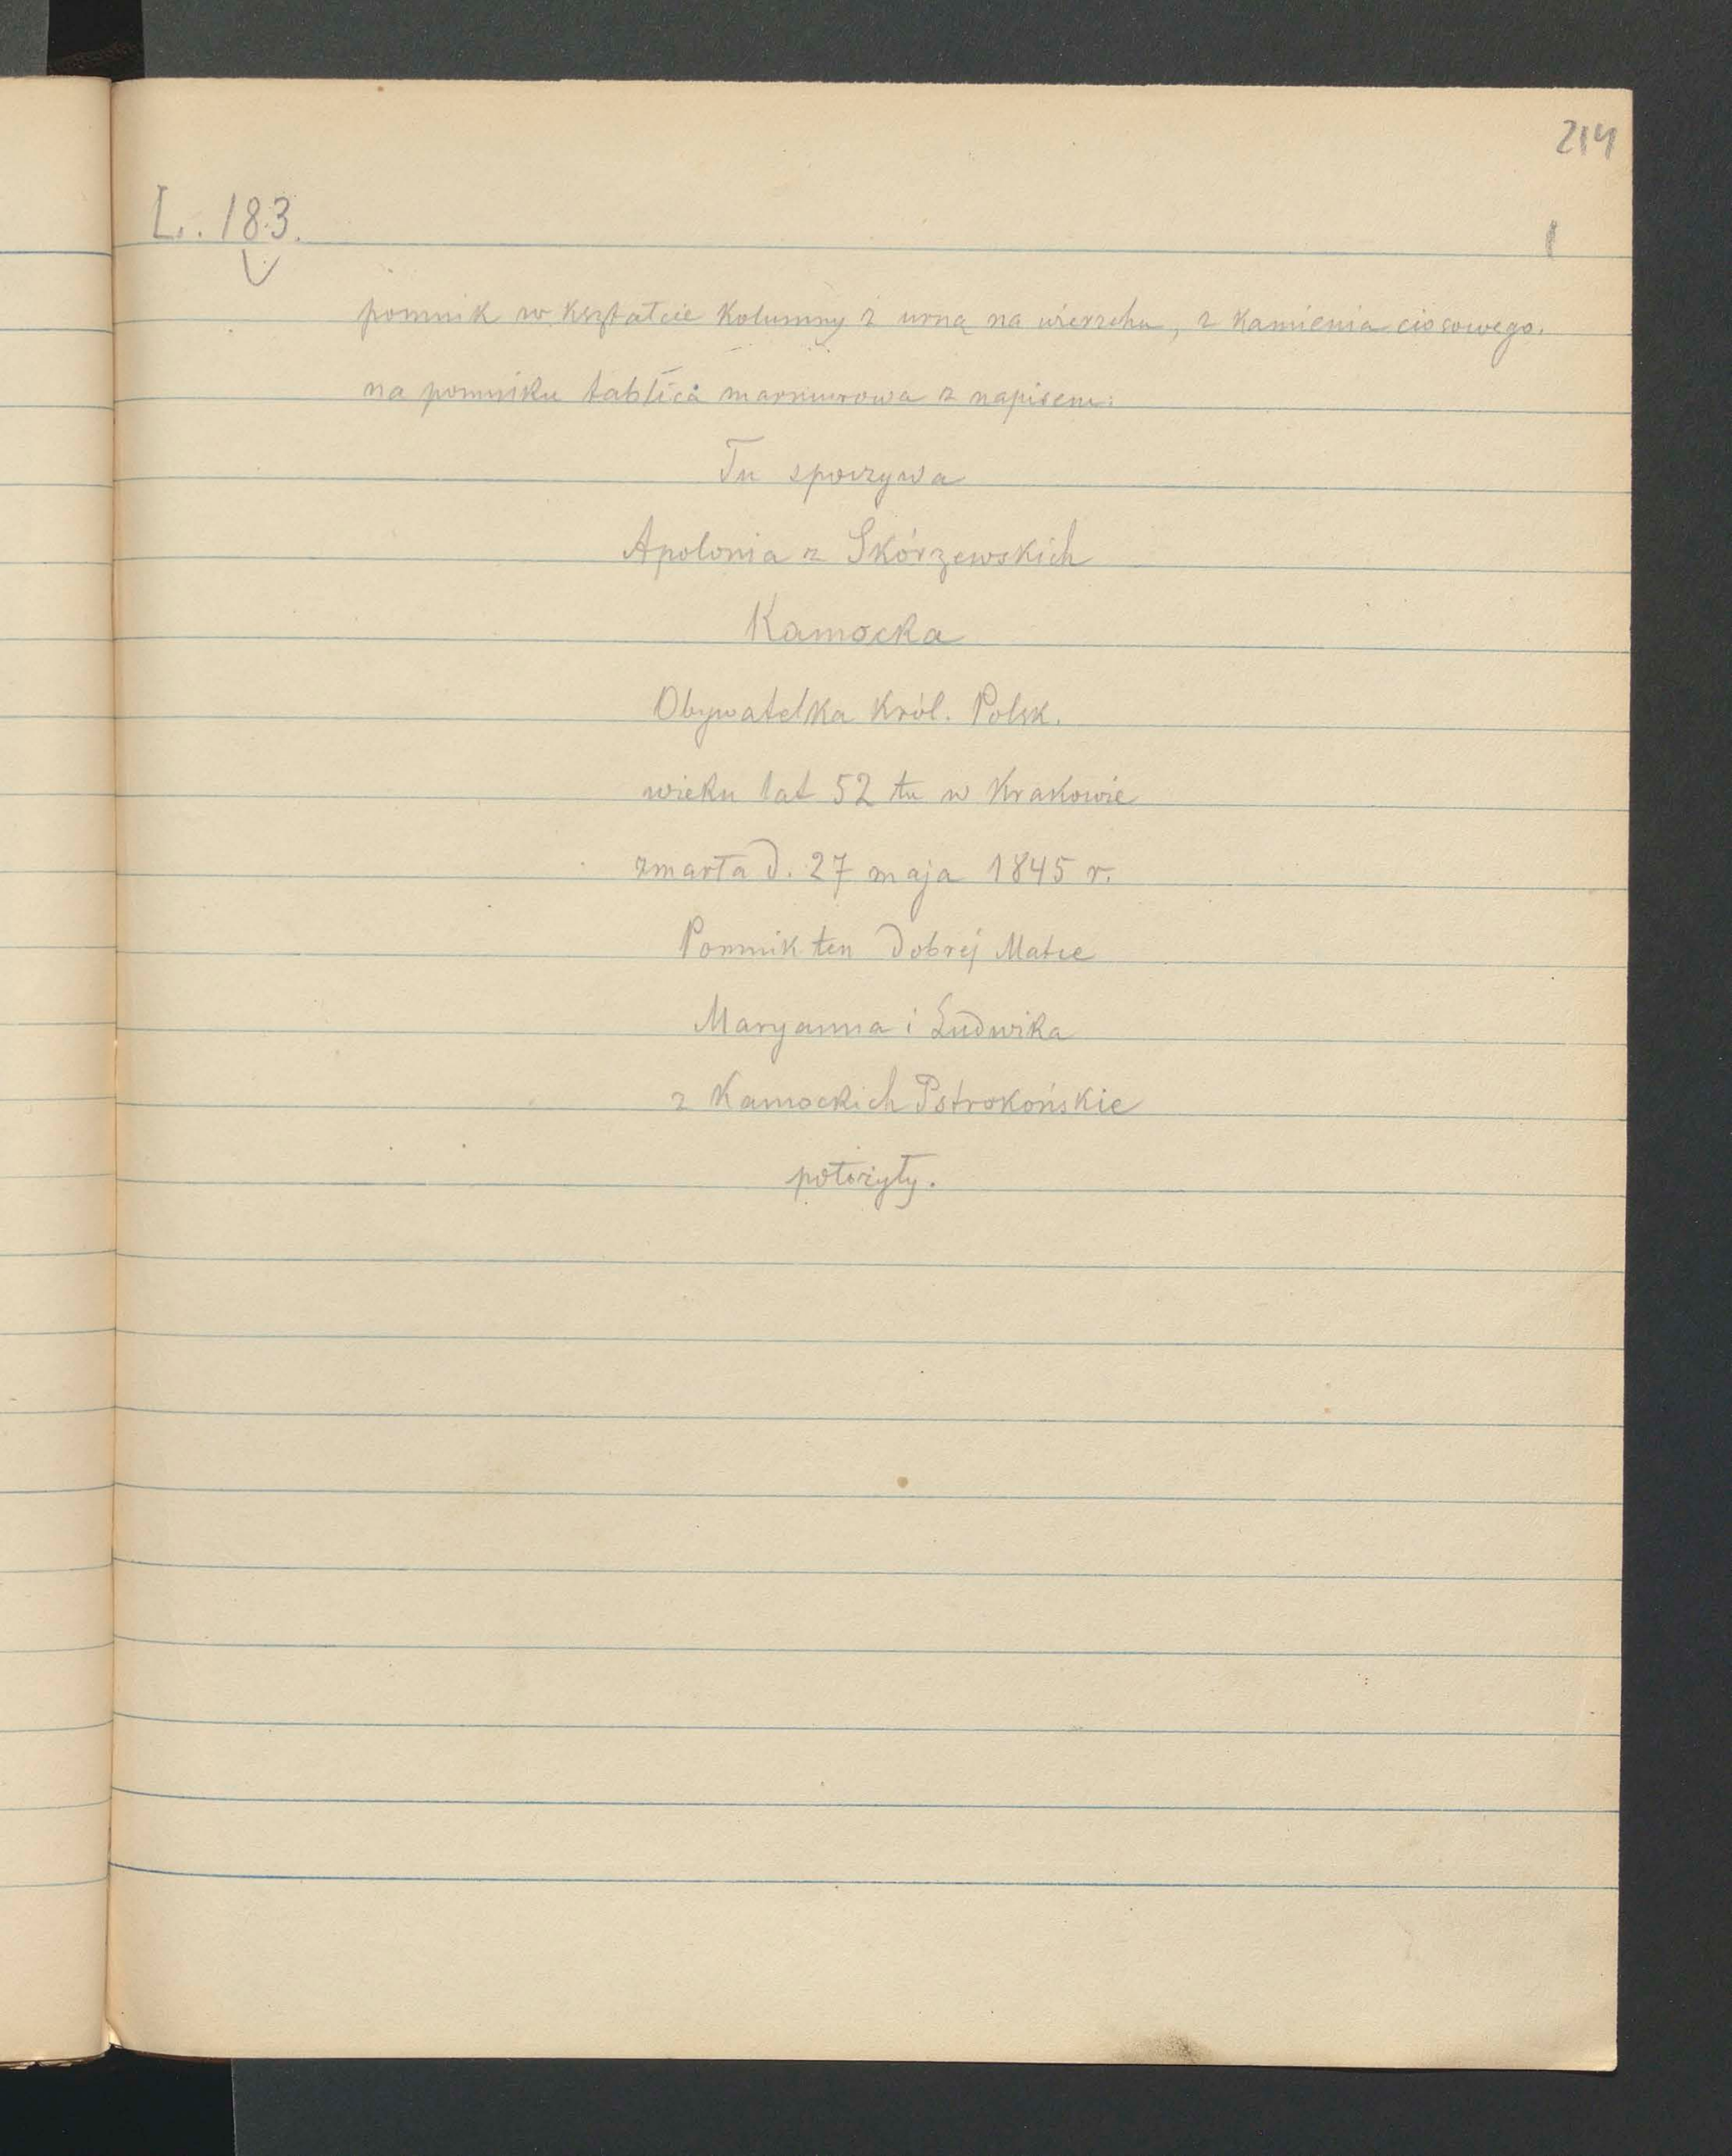 214
L. 183.
pomnik w kształcie kolumny z urną na wierzchu, z kamienia ciosowego.
na pomniku tablica marmurowa z napisem:
Tu spoczywa
Apolonia z Skórzewskich
Kamocka
Obywatelka Król. Polsk.
wieku lat 52 tu w Krakowie
zmarła d. 27 maja 1845 r.
Pomnik ten dobrej Matce
Maryanna i Ludwika
z Kamockich Pstrokońskie
położyły.